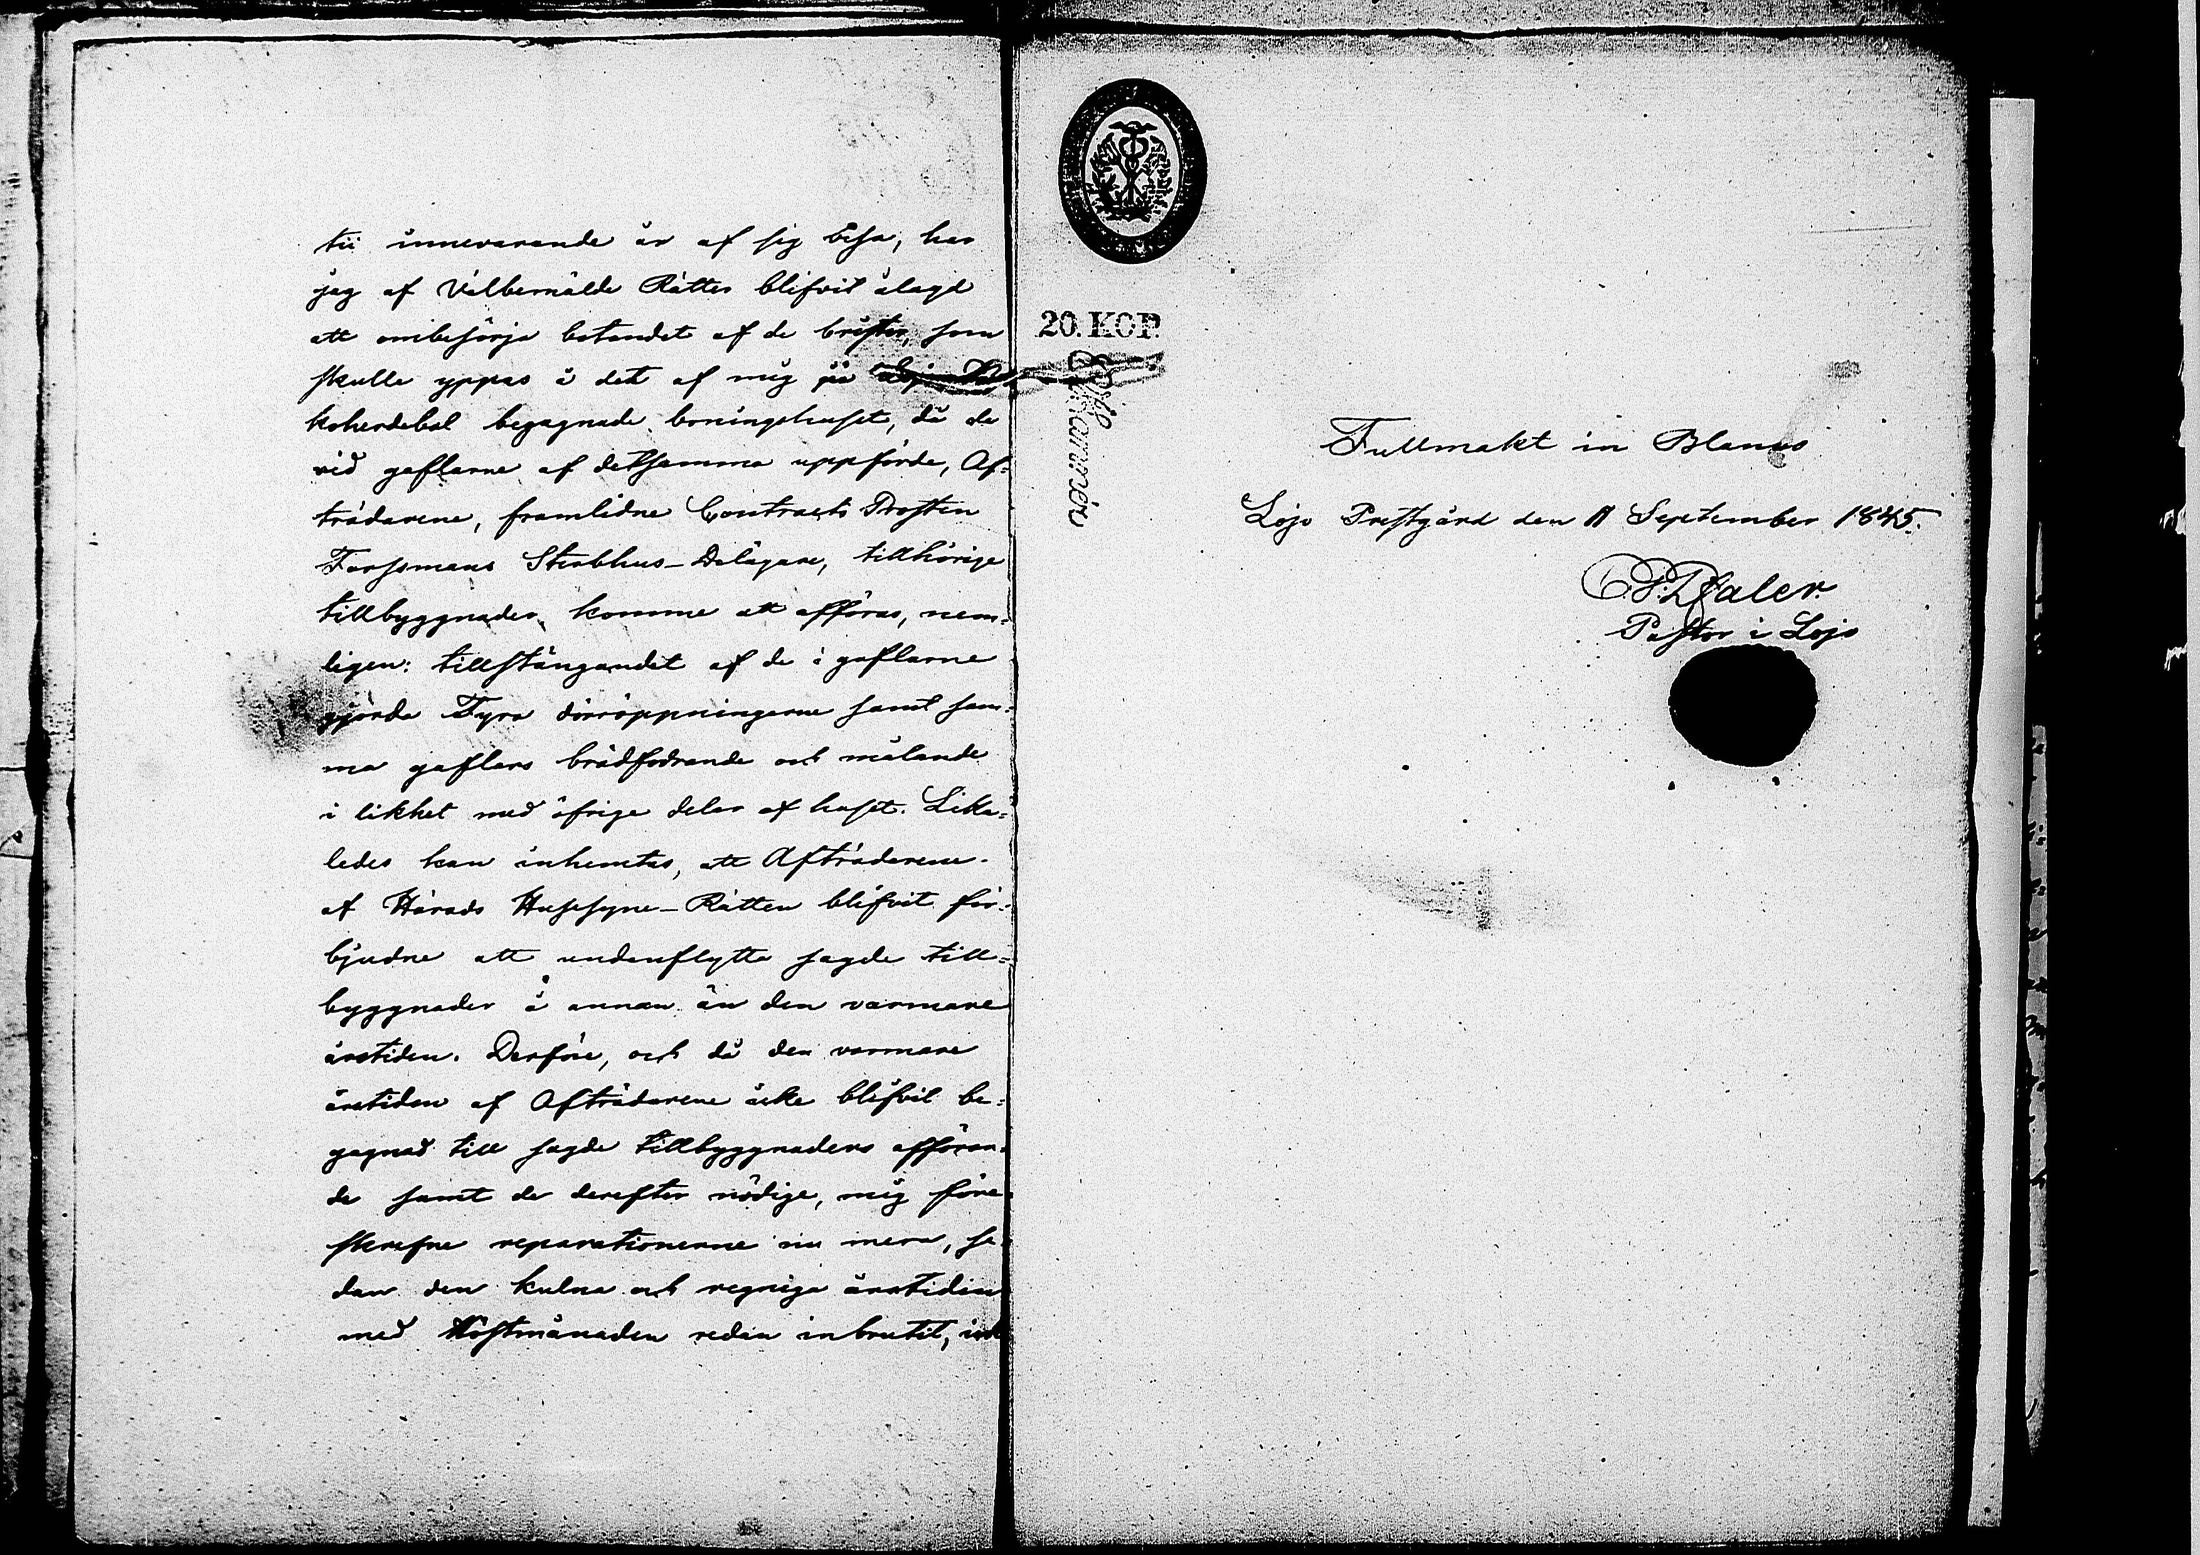 tii innevarande år af sig befa, har
jag af Välbemälde Rätter blifvit ålagd
att ombesörja botandet af de brister, som
skulle yppas å det af mig på Lojo
koherdebol begagnade boningshuset, då de
vid gaflarne af detsamma uppförde, Af-
trädarene, framlidne Contracts Prosten
Forssmans Sterbhus-Delägare, tillhörige
tillbyggnader, komme att afföras, nem-
ligen: tillstängandet af de i gaflarne
gjorda Fyra dörröppningarne samt sam-
ma gaflars brädfodrande och målande
i likhet med öfrige delar af huset. Lika-
ledes kan inhemtas, att Afträdarene
af Härads Husesyne-Rätten blifvit för-
bjudne att undanflytta sagde till-
byggnader å annan än den varmare
årstiden. Derföre, och då den varmare
årstiden af Afträdarene icke blifvit be-
gagnad till sagde tillbyggnaders afföran-
de samt de derefter nödige, mig före-
skrefne reparationerne nu mera, se-
dan den kulna och regniga årstiden
med Höstmånaden redan inbrutit, ick
20. KOP.
Fullmakt in Blanco
Lojo Prestgård den 11 September 1845.
Pastor i Lojo